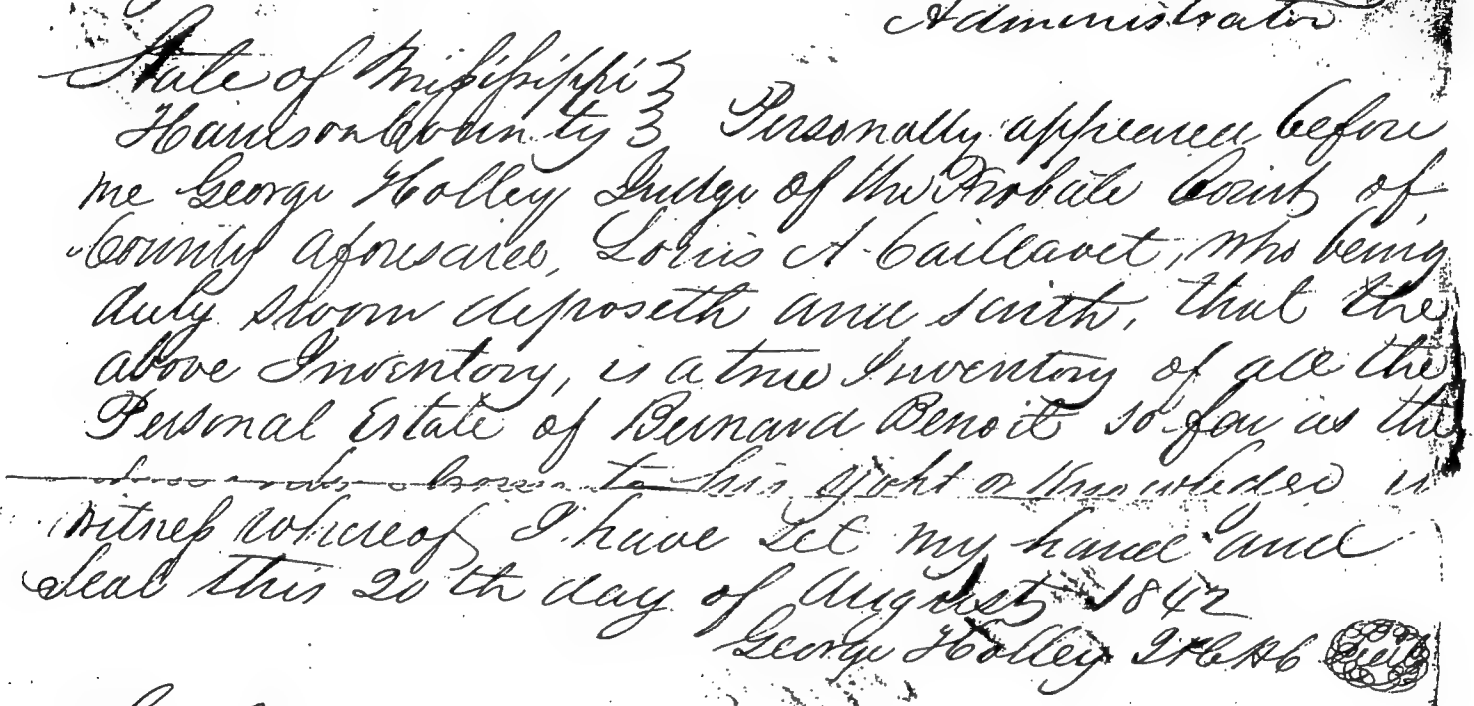 Administrator
State of Mississippi }
Harrison County } Personally appeared before
me George Holley Judge of the Probate Court of
County aforesaid, Louis A Caillavet, who being
duly sworn deposeth and saith, that the
above Inventory, is a true Inventory of all the
Personal Estate of Bernard Benoit so far as the
to his sight or knowledge in
witness whereof I have set my hand and
Seal this 20th day of August 1842
George Holley Seal